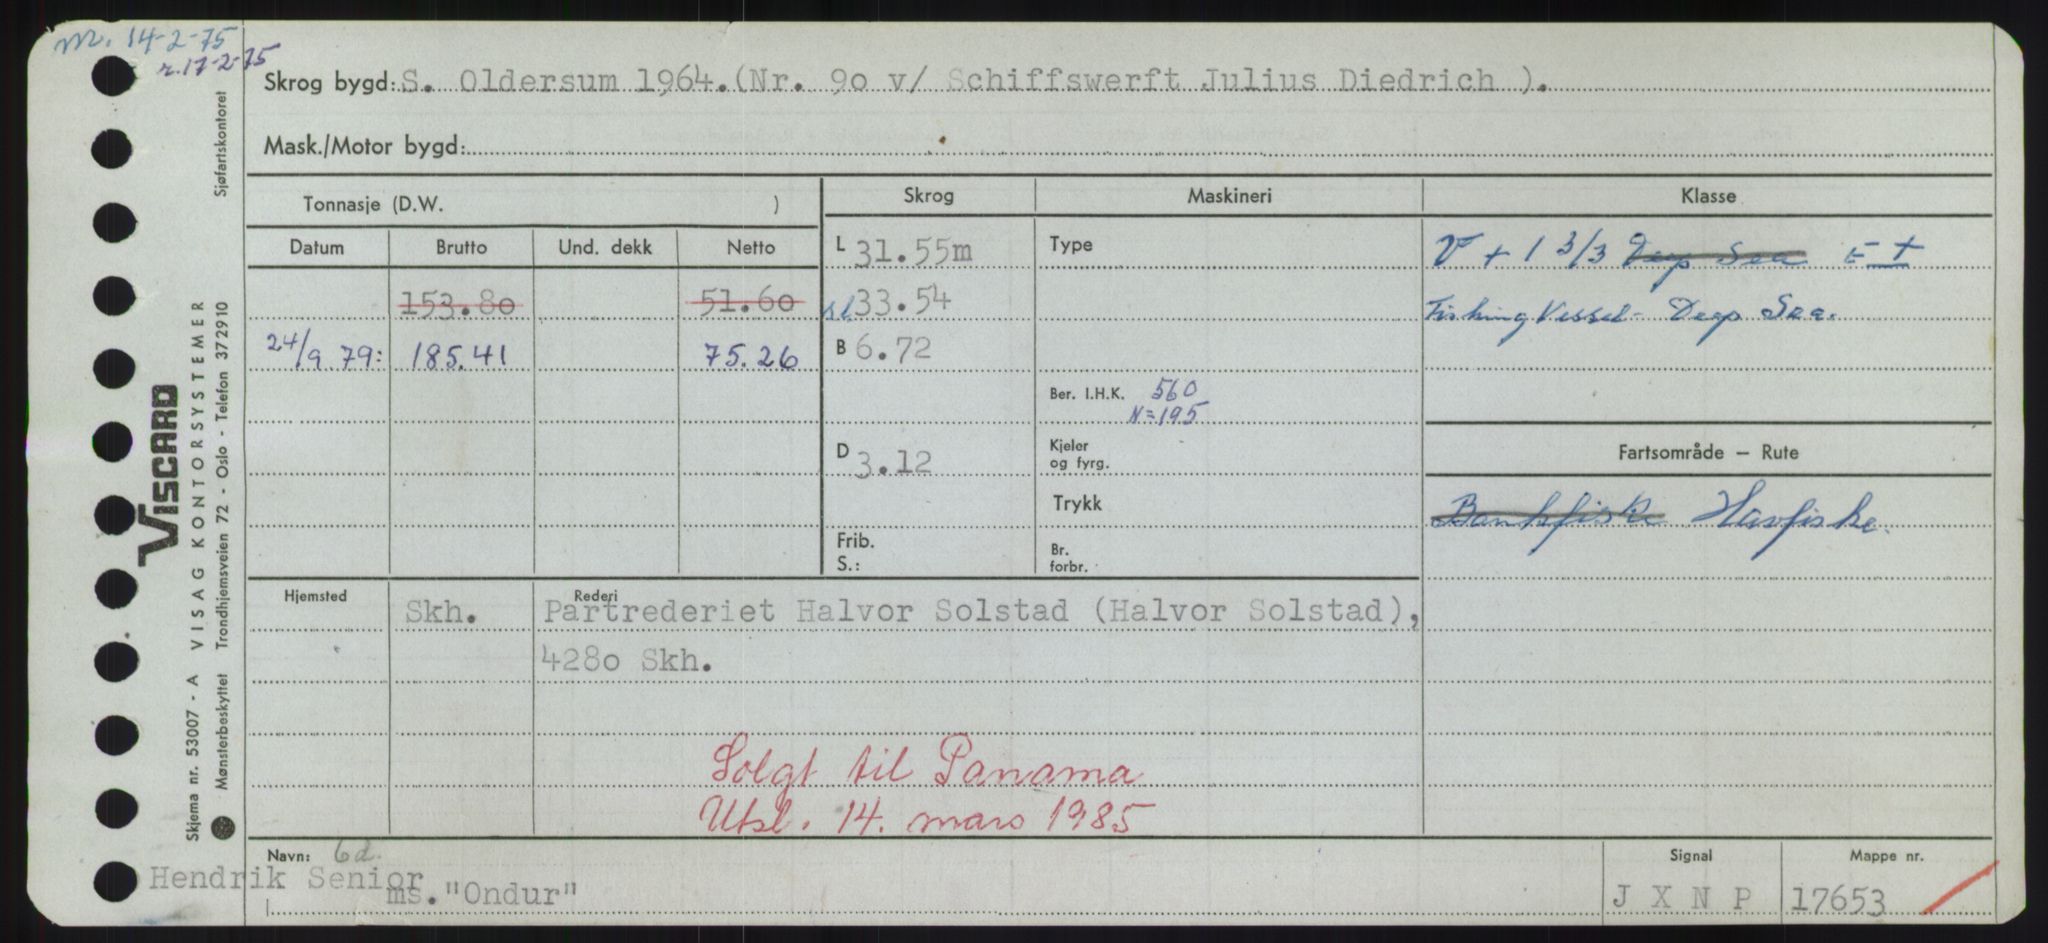 m. 14-2-75
r. 17-2-75
Skrog bygd: S. Oldersum 1964.(Nr. 9o v/ Schiffswerft Julius Diedrich ).
Mask./Motor bygd:
Tonnasje (D.W. )
Skrog
Maskineri
Klasse
Datum
Brutto
Und. dekk
Netto
153.80
51.60
24/9 79:
185.41
75.26
L 31.55m
sl 33.54
B 6.72
D 3.12
Frib.
S.:
Type
Ber. I.H.K. 560
N=195
Kjeler
og fyrg.
Trykk
Br.
forbr.
V + 1 3/3 Deep Sea E +
Fishing Vessel - Deep Sea.
Fartsområde – Rute
Bankfiske Havfiske.
Hjemsted
Skh.
Rederi
Partrederiet Halvor Solstad (Halvor Solstad),
428o Skh.
Solgt til Panama
Utsl. 14. mars 1985
Navn: 6d.
Hendrik Senior
ms. "Ondur"
Signal
J X N P
Mappe nr.
17653
Viscard
Skjema nr. 53007 - A VISAG KONTORSYSTEMER
Mønsterbeskyttet Trondhjemsveien 72 - Oslo - Telefon 372910
Sjøfartskontoret